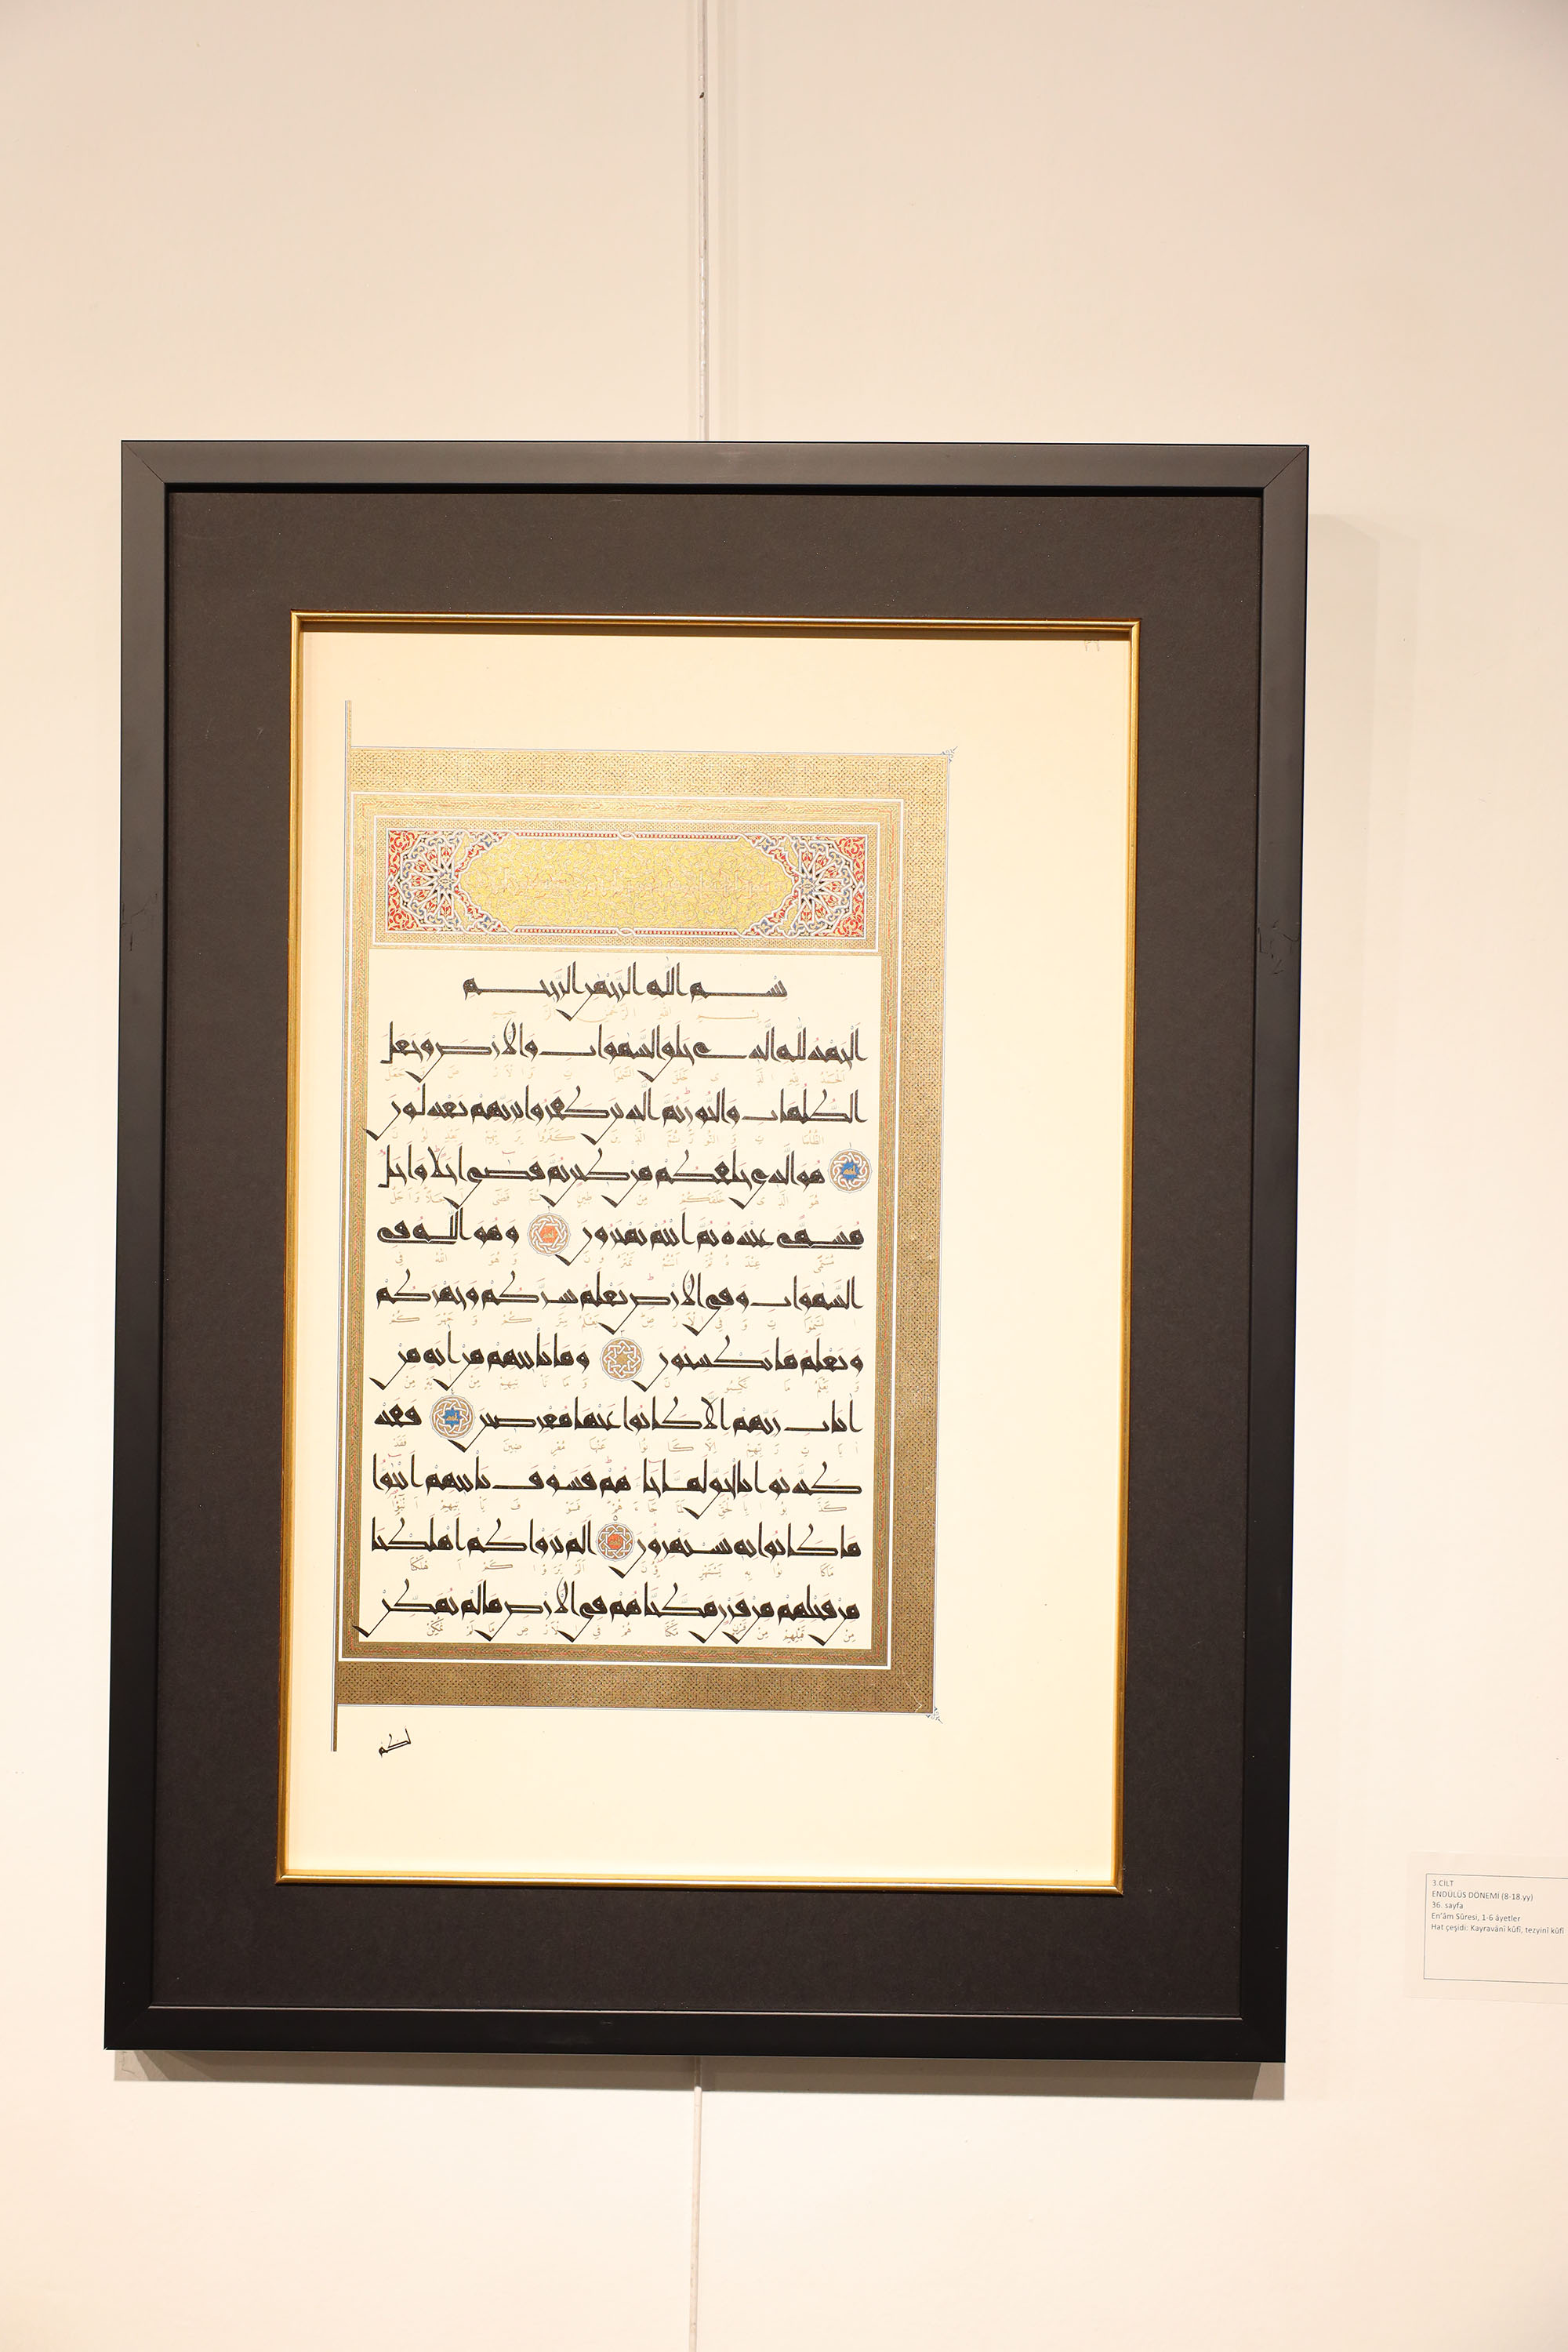 بسم الله الرحمن الرحيم
الحمد لله الذي خلق السموات والارض وجعل
الظلمات والنور ثم الذين كفروا بربهم يعدلون
هو الذي خلقكم من طين ثم قضى اجلا واجل
مسمى عنده ثم انتم تمترون وهو الله في
السموات وفي الارض يعلم سركم وجهركم
ويعلم ما تكسبون وما تاتيهم من اية من
ايات ربهم الا كانوا عنها معرضين فقد
كذبوا بالحق لما جاءهم فسوف ياتيهم انبؤا
ما كانوا به يستهزؤن الم يروا كم اهلكنا
من قبلهم من قرن مكناهم في الارض ما لم نمكن
لكم
3.CİLT
ENDÜLÜS DÖNEMİ (8-18.yy)
36. sayfa
En'âm Sûresi, 1-6 âyetler
Hat çeşidi: Kayravânî kûfî, tezyinî kûfî